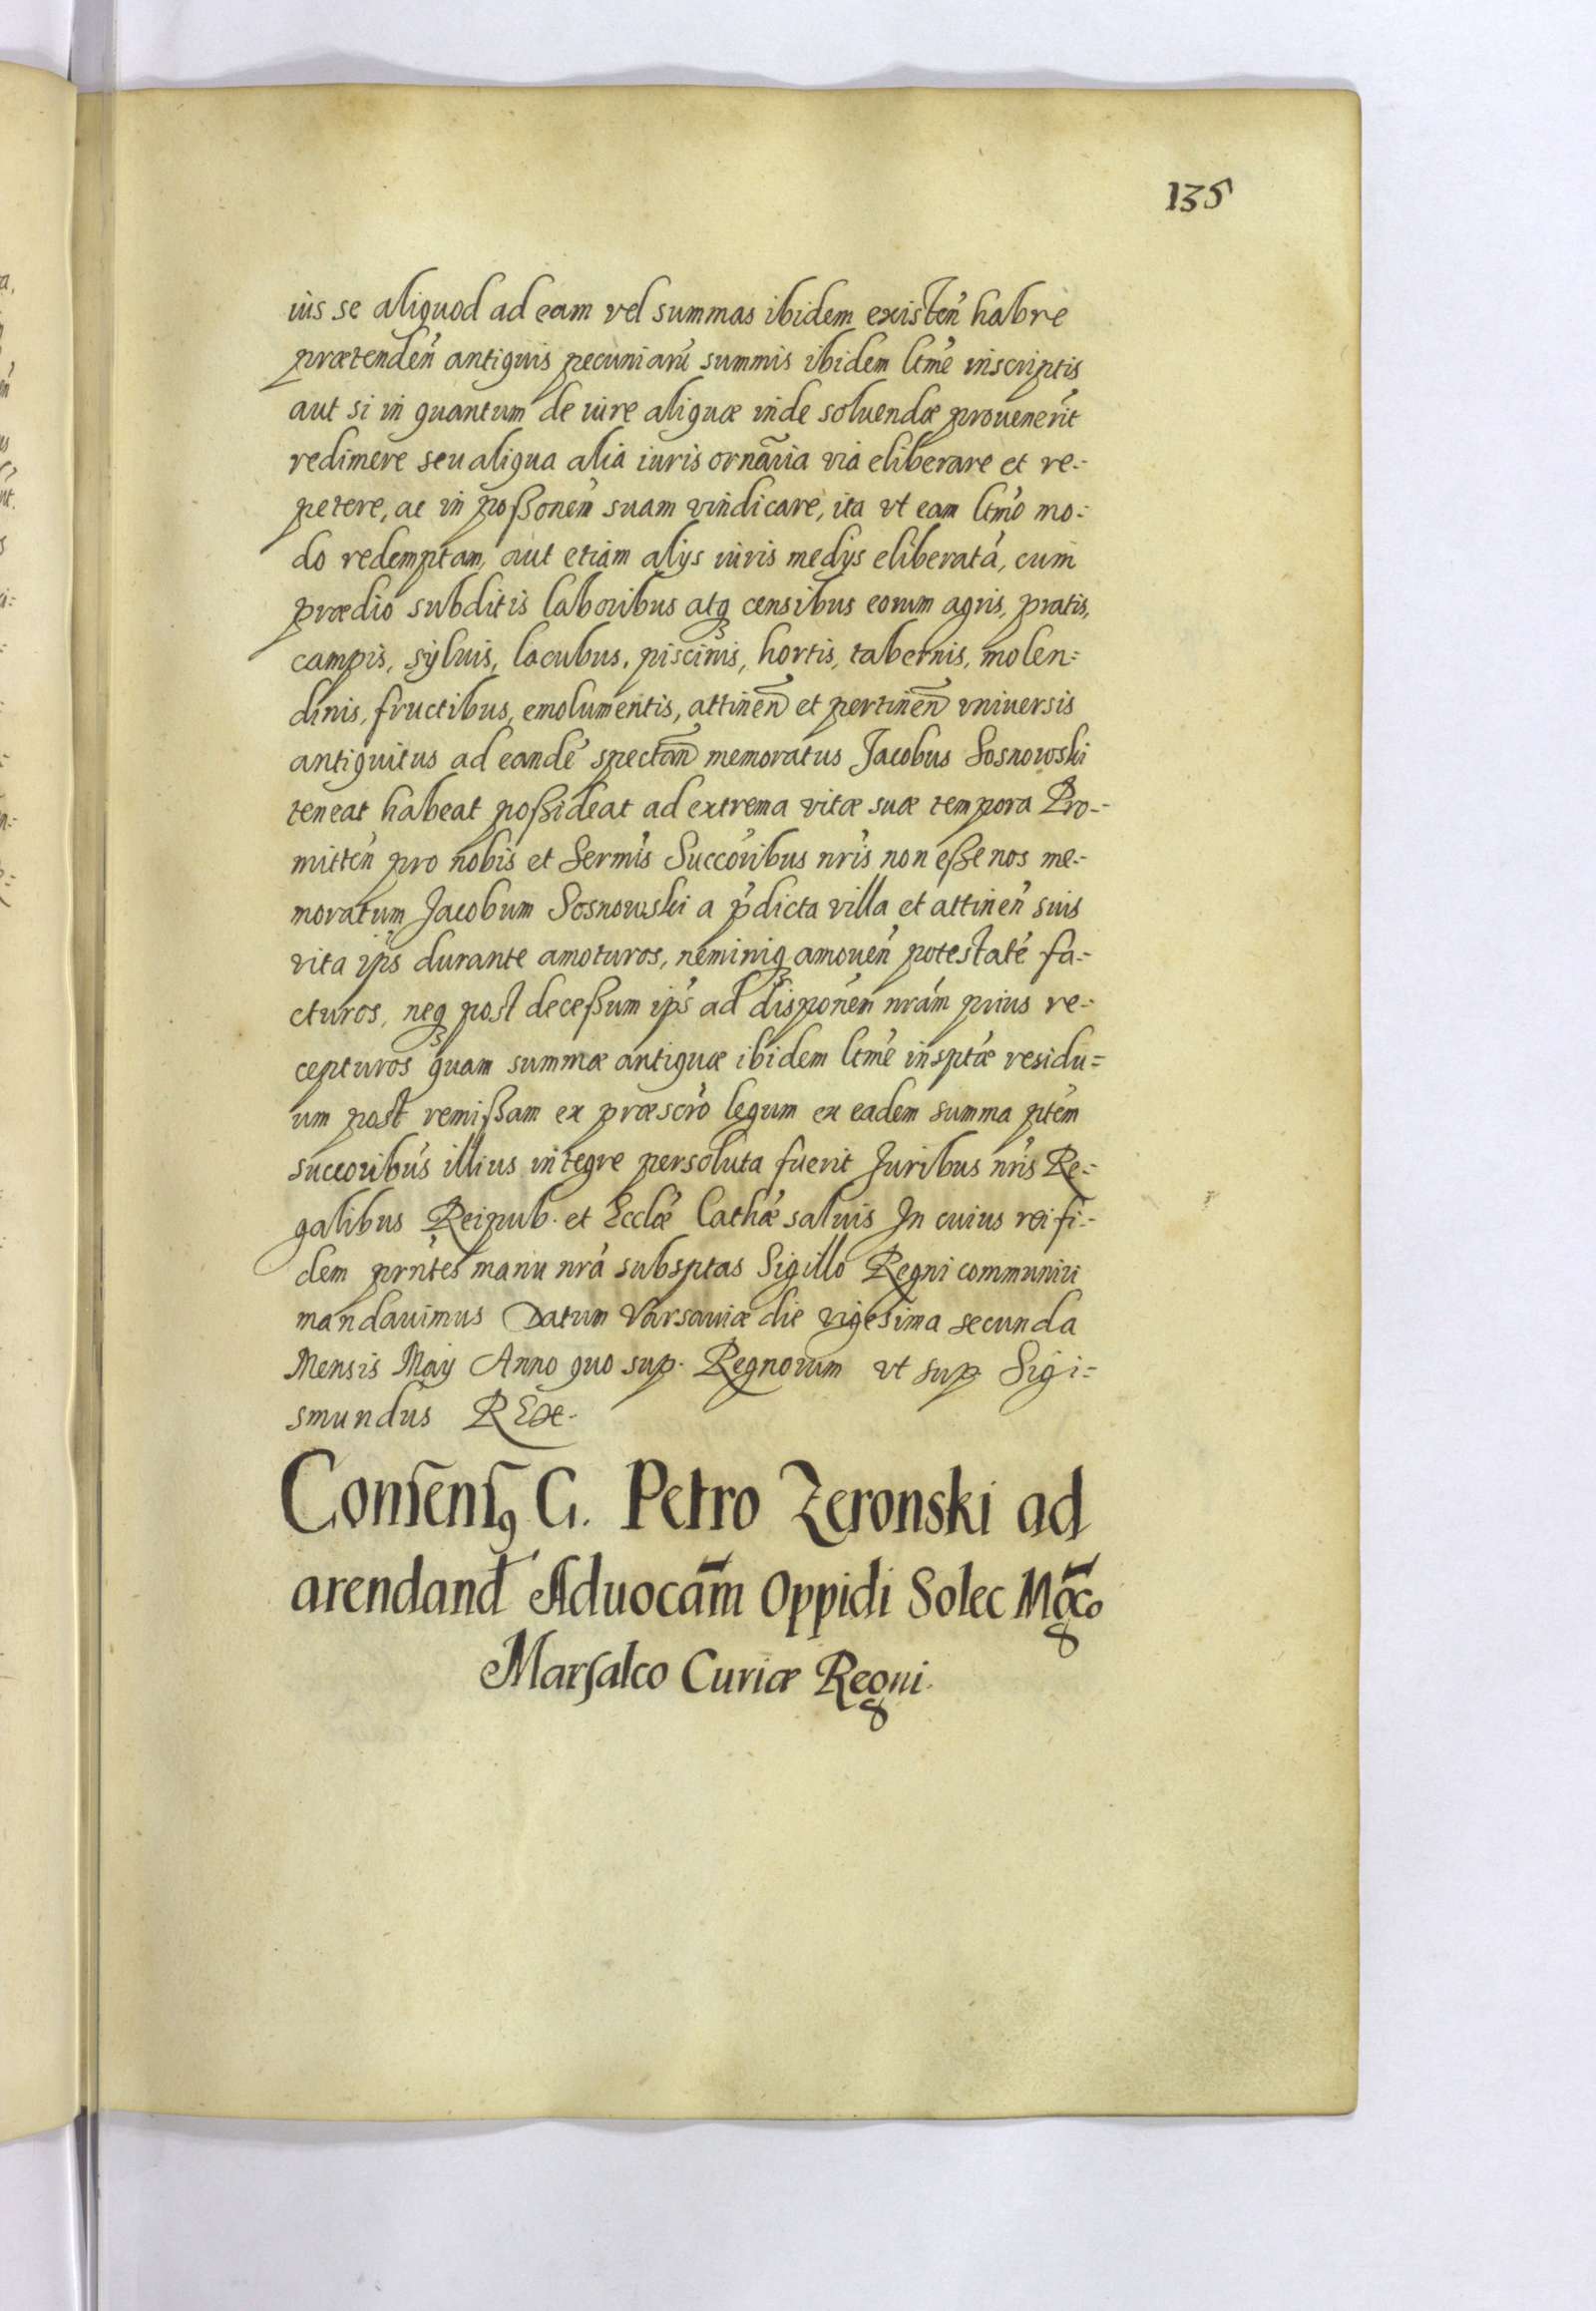 135
iùs se aliquod ad eam vel summas ibidem existeń habre
prætendeń antiquis pecuniarú summis ibidem ltmé inscriptis
aut si in quantum de iure aliquæ inde soluendæ prouenerit
redimere seu aliqua alia iuris ornãria via eliberare et re-
petere, ac in poßonem suam vindicare, ita vt eam ltmó mo-
do redemptam, aut etiam alijs iuris medijs eliberatá, cum
prædio subditis laboribus atq censibus eorum agris, pratis,
campis, syluis, lacubus, piscinis, hortis, tabernis, molen-
dinis, fructibus, emolumentis, attineñ et pertineñ vniuersis
antiquitus ad eandé spectañ memoratus Jacobus Sosnowski
teneat habeat poßideat ad extrema vitæ suæ tempora Pro-
mitteń pro nobis et Sermis Succoribus nris non eße nos me-
moratum Jacobum Sosnowski a pdicta villa et attineń suis
vita ips durante amoturos, neminiq amoueń potestaté fa-
cturos, neq post deceßum ips ad disponem nrám prius re-
cepturos quam summæ antiquæ ibidem ltmé insptæ residu-
um post remißam ex præscro legum ex eadem summa ptem
succoribus illius integre persoluta fuerit Juribus nris Re-
galibus Reipub. et Ecclæ Cathæ saluis In cuius rei fi-
dem prntes manu nrá subsptas Sigillo Regni communiri
mandauimus Datum Varsauiæ die vigesima secunda
Mensis Maij Anno quo sup. Regnorum vt sup Sigi-
smundus REx.
Consens9 G. Petro Zeronski ad
arendand Aduocam̃ Oppidi Solec Mg̃co
Marsalco Curiæ Regni.